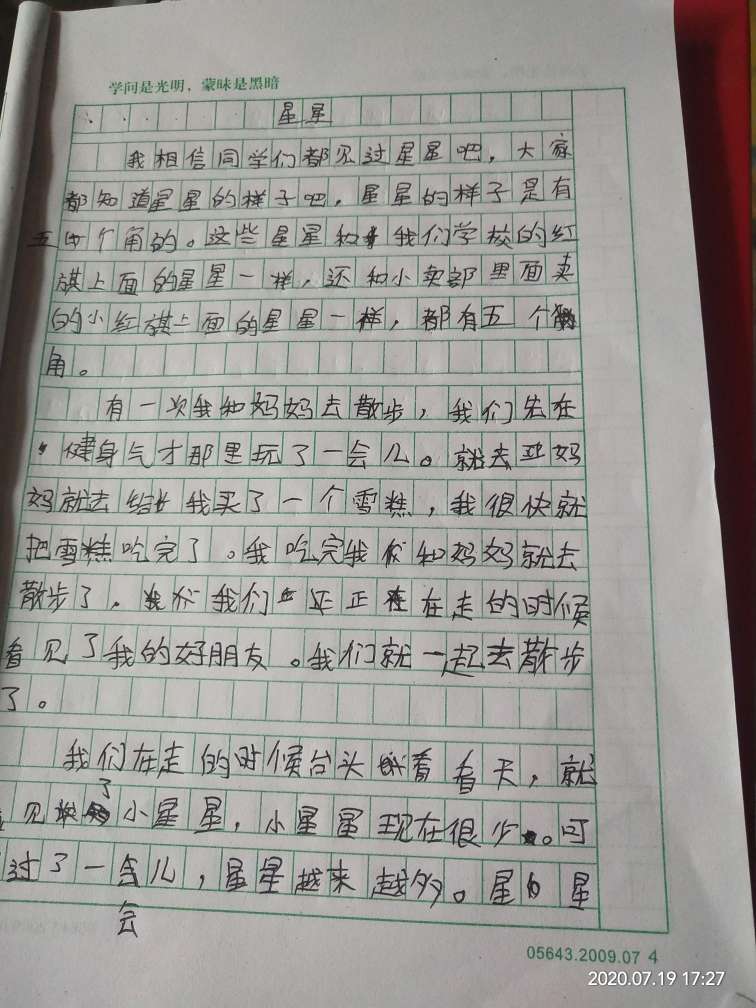 学问是光明，蒙昧是黑暗
星星
我相信同学们都见过星星吧，大家
都知道星星的样子吧，星星的样子是有
五个角的。这些星星和我们学校的红
旗上面的星星一样，还和小卖部里面卖
的小红旗上面的星星一样，都有五个
角。
有一次我和妈妈去散步，我们先在
健身气才那里玩了一会儿。就去妈
妈就去给我买了一个雪糕，我很快就
把雪糕吃完了。我吃完我和妈妈就去
散步了。我们正在走的时候
看见了我的好朋友。我们就一起去散步
了。
我们在走的时候台头看天，就
见了小星星，小星星现在很少。可
过了一会儿，星星越来越多。星星
会
05643.2009.07 4
2020.07.19 17:27